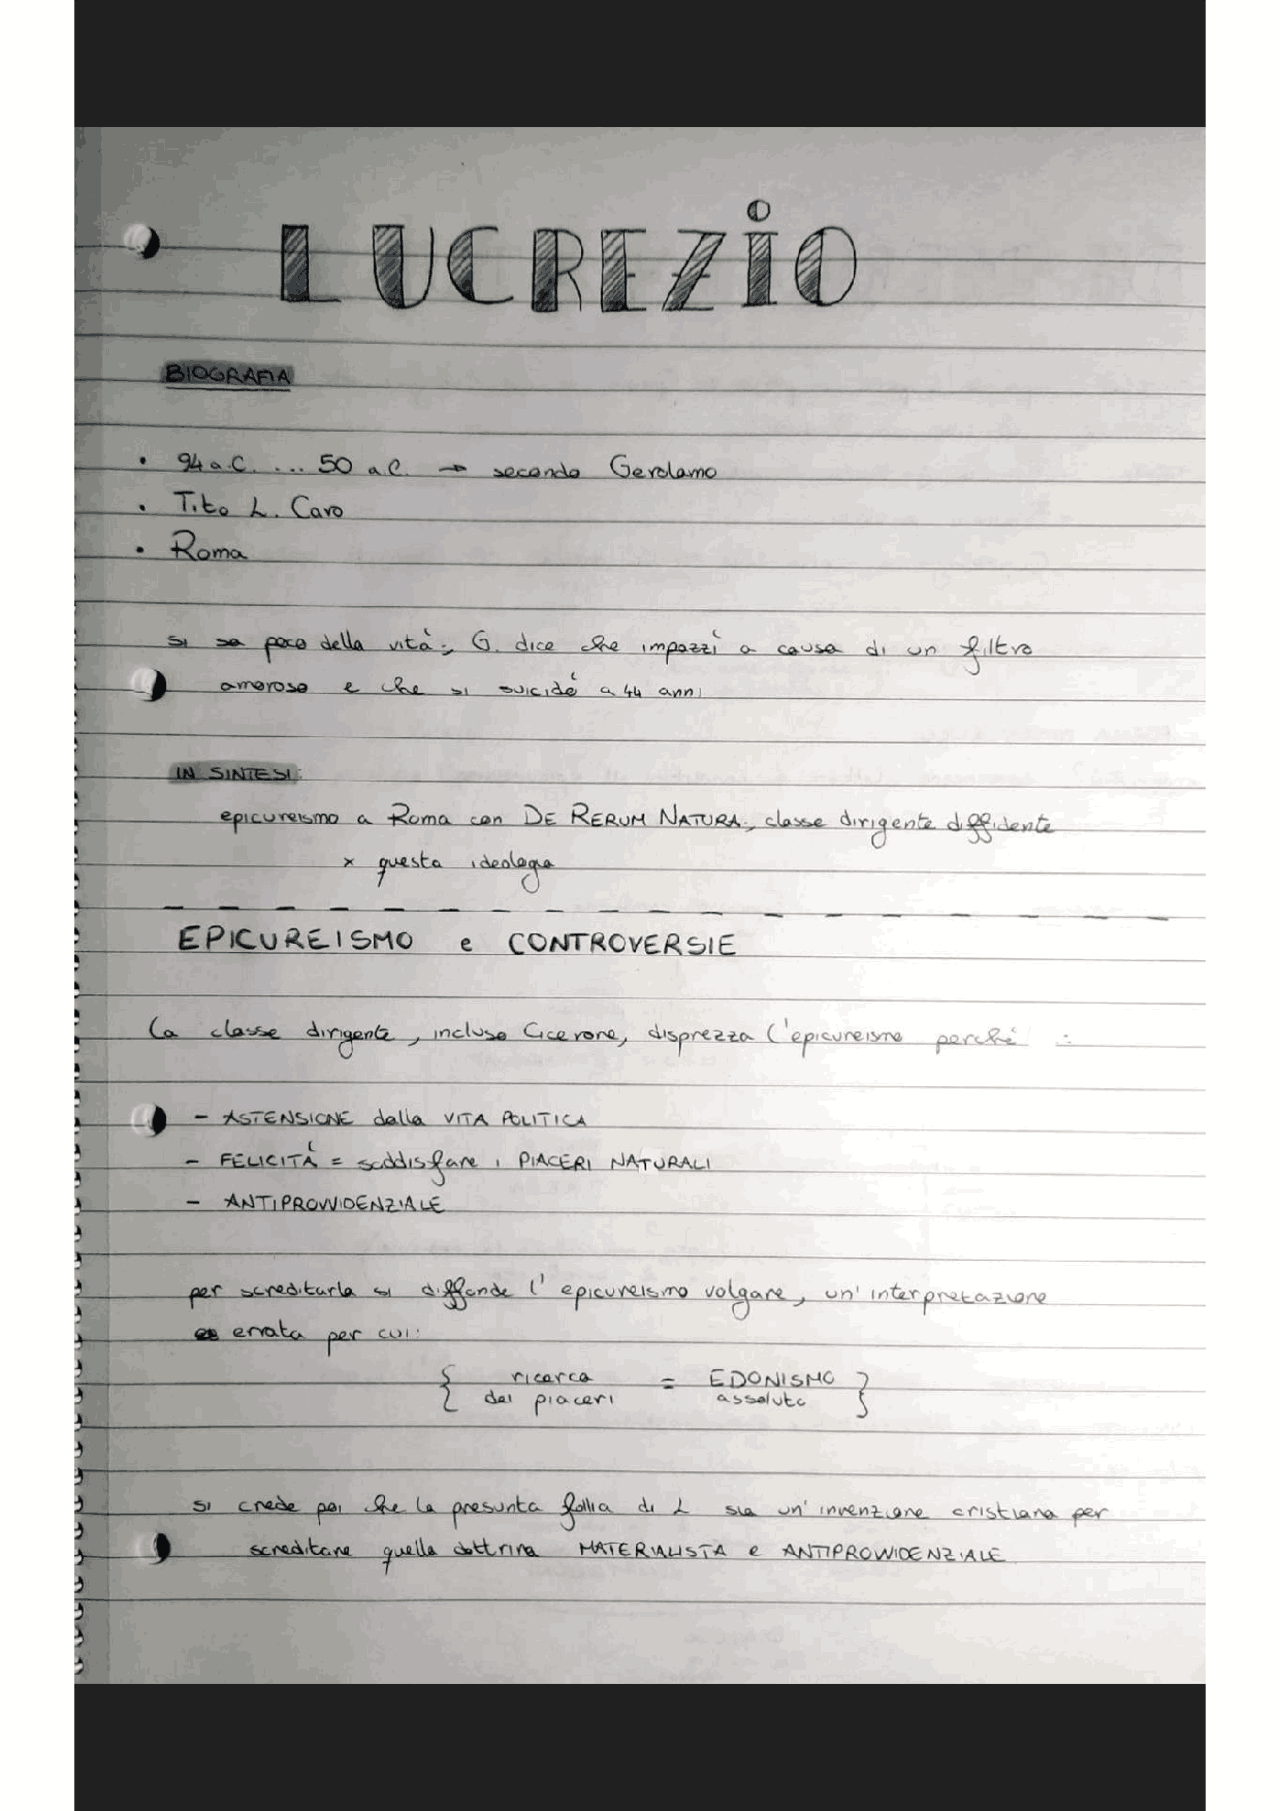 LUCREZIO
BIOGRAFIA
• 94 a.C. ... 50 a.C. → secondo Gerolamo
• Tito L. Caro
• Roma
si sa poco della vità; G. dice che impazzì a causa di un filtro
amoroso e che si suicidé a 44 anni
IN SINTESI:
epicureismo a Roma con DE RERUM NATURA; classe dirigente diffidente
x questa ideologia
EPICUREISMO e CONTROVERSIE
la classe dirigente, incluso Cicerone, disprezza l'epicureismo perché :
- ASTENSIONE dalla VITA POLITICA
- FELICITÀ = soddisfare i PIACERI NATURALI
- ANTIPROVVIDENZIALE
per screditarla si diffonde l'epicureismo volgare, un'interpretazione
errata per cui:
{ ricerca = EDONISMO }
dei piaceri assoluto
si crede poi che la presunta follia di L sia un'invenzione cristiana per
screditare quella dottrina MATERIALISTA e ANTIPROVVIDENZIALE